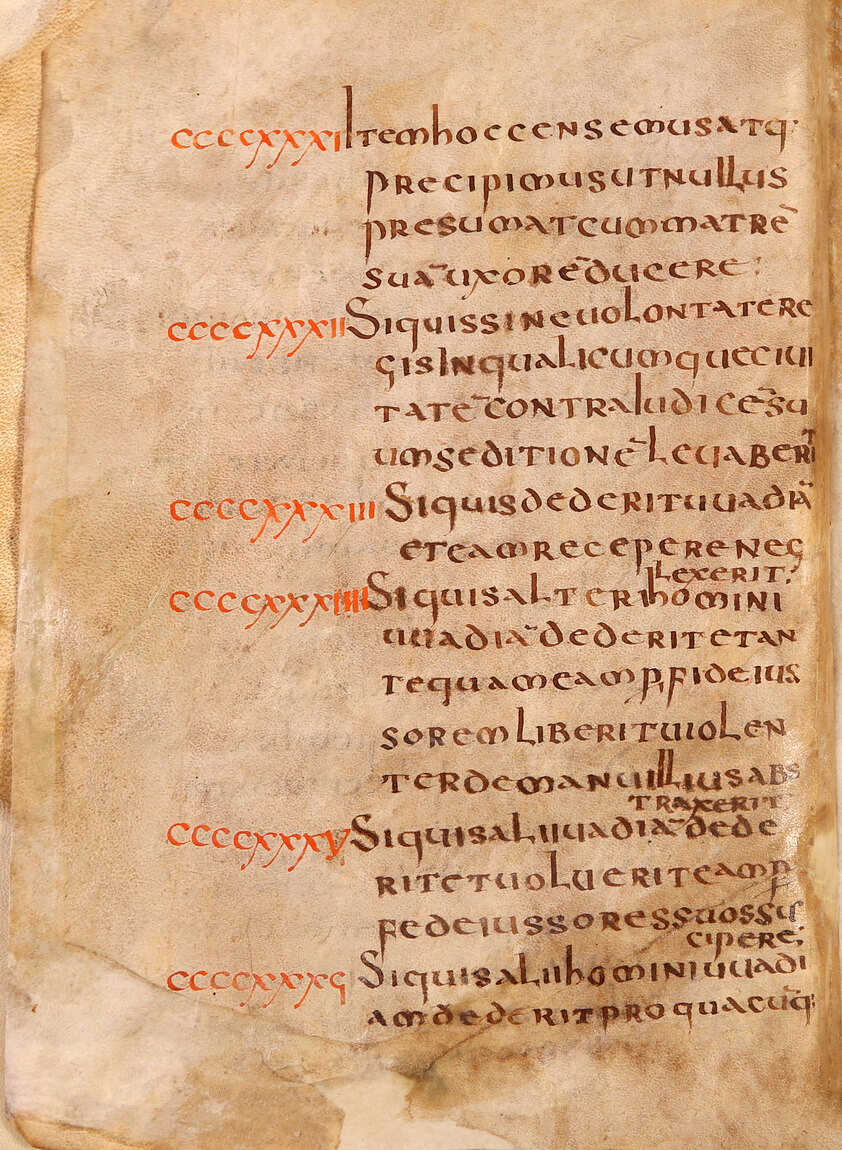 CCCCXXXI Item hoc censemus atq·
precipimus ut nullus
presumat cum matrē
suā uxorē ducere :
CCCCXXXII Si quis sine uolontate re
gis in qualicumque ciui
tatē contra iudicē su
um seditionē leuaberit
CCCCXXXIII Si quis dederit uuadiā
et eam recepere neg
lexerit·
CCCCXXXIIII Si quis alteri homini
uuadiā dederit et an
tequam eam p fideius
sorem liberit uiolen
ter de manu illius abs
traxerit
CCCCXXXV Si quis alii uuadiā dede
rit et uoluerit eam p
fedeiussores suos sus
cipere;
CCCCXXXϚ Si quis alii homini uuadi
am dederit pro quacūq;